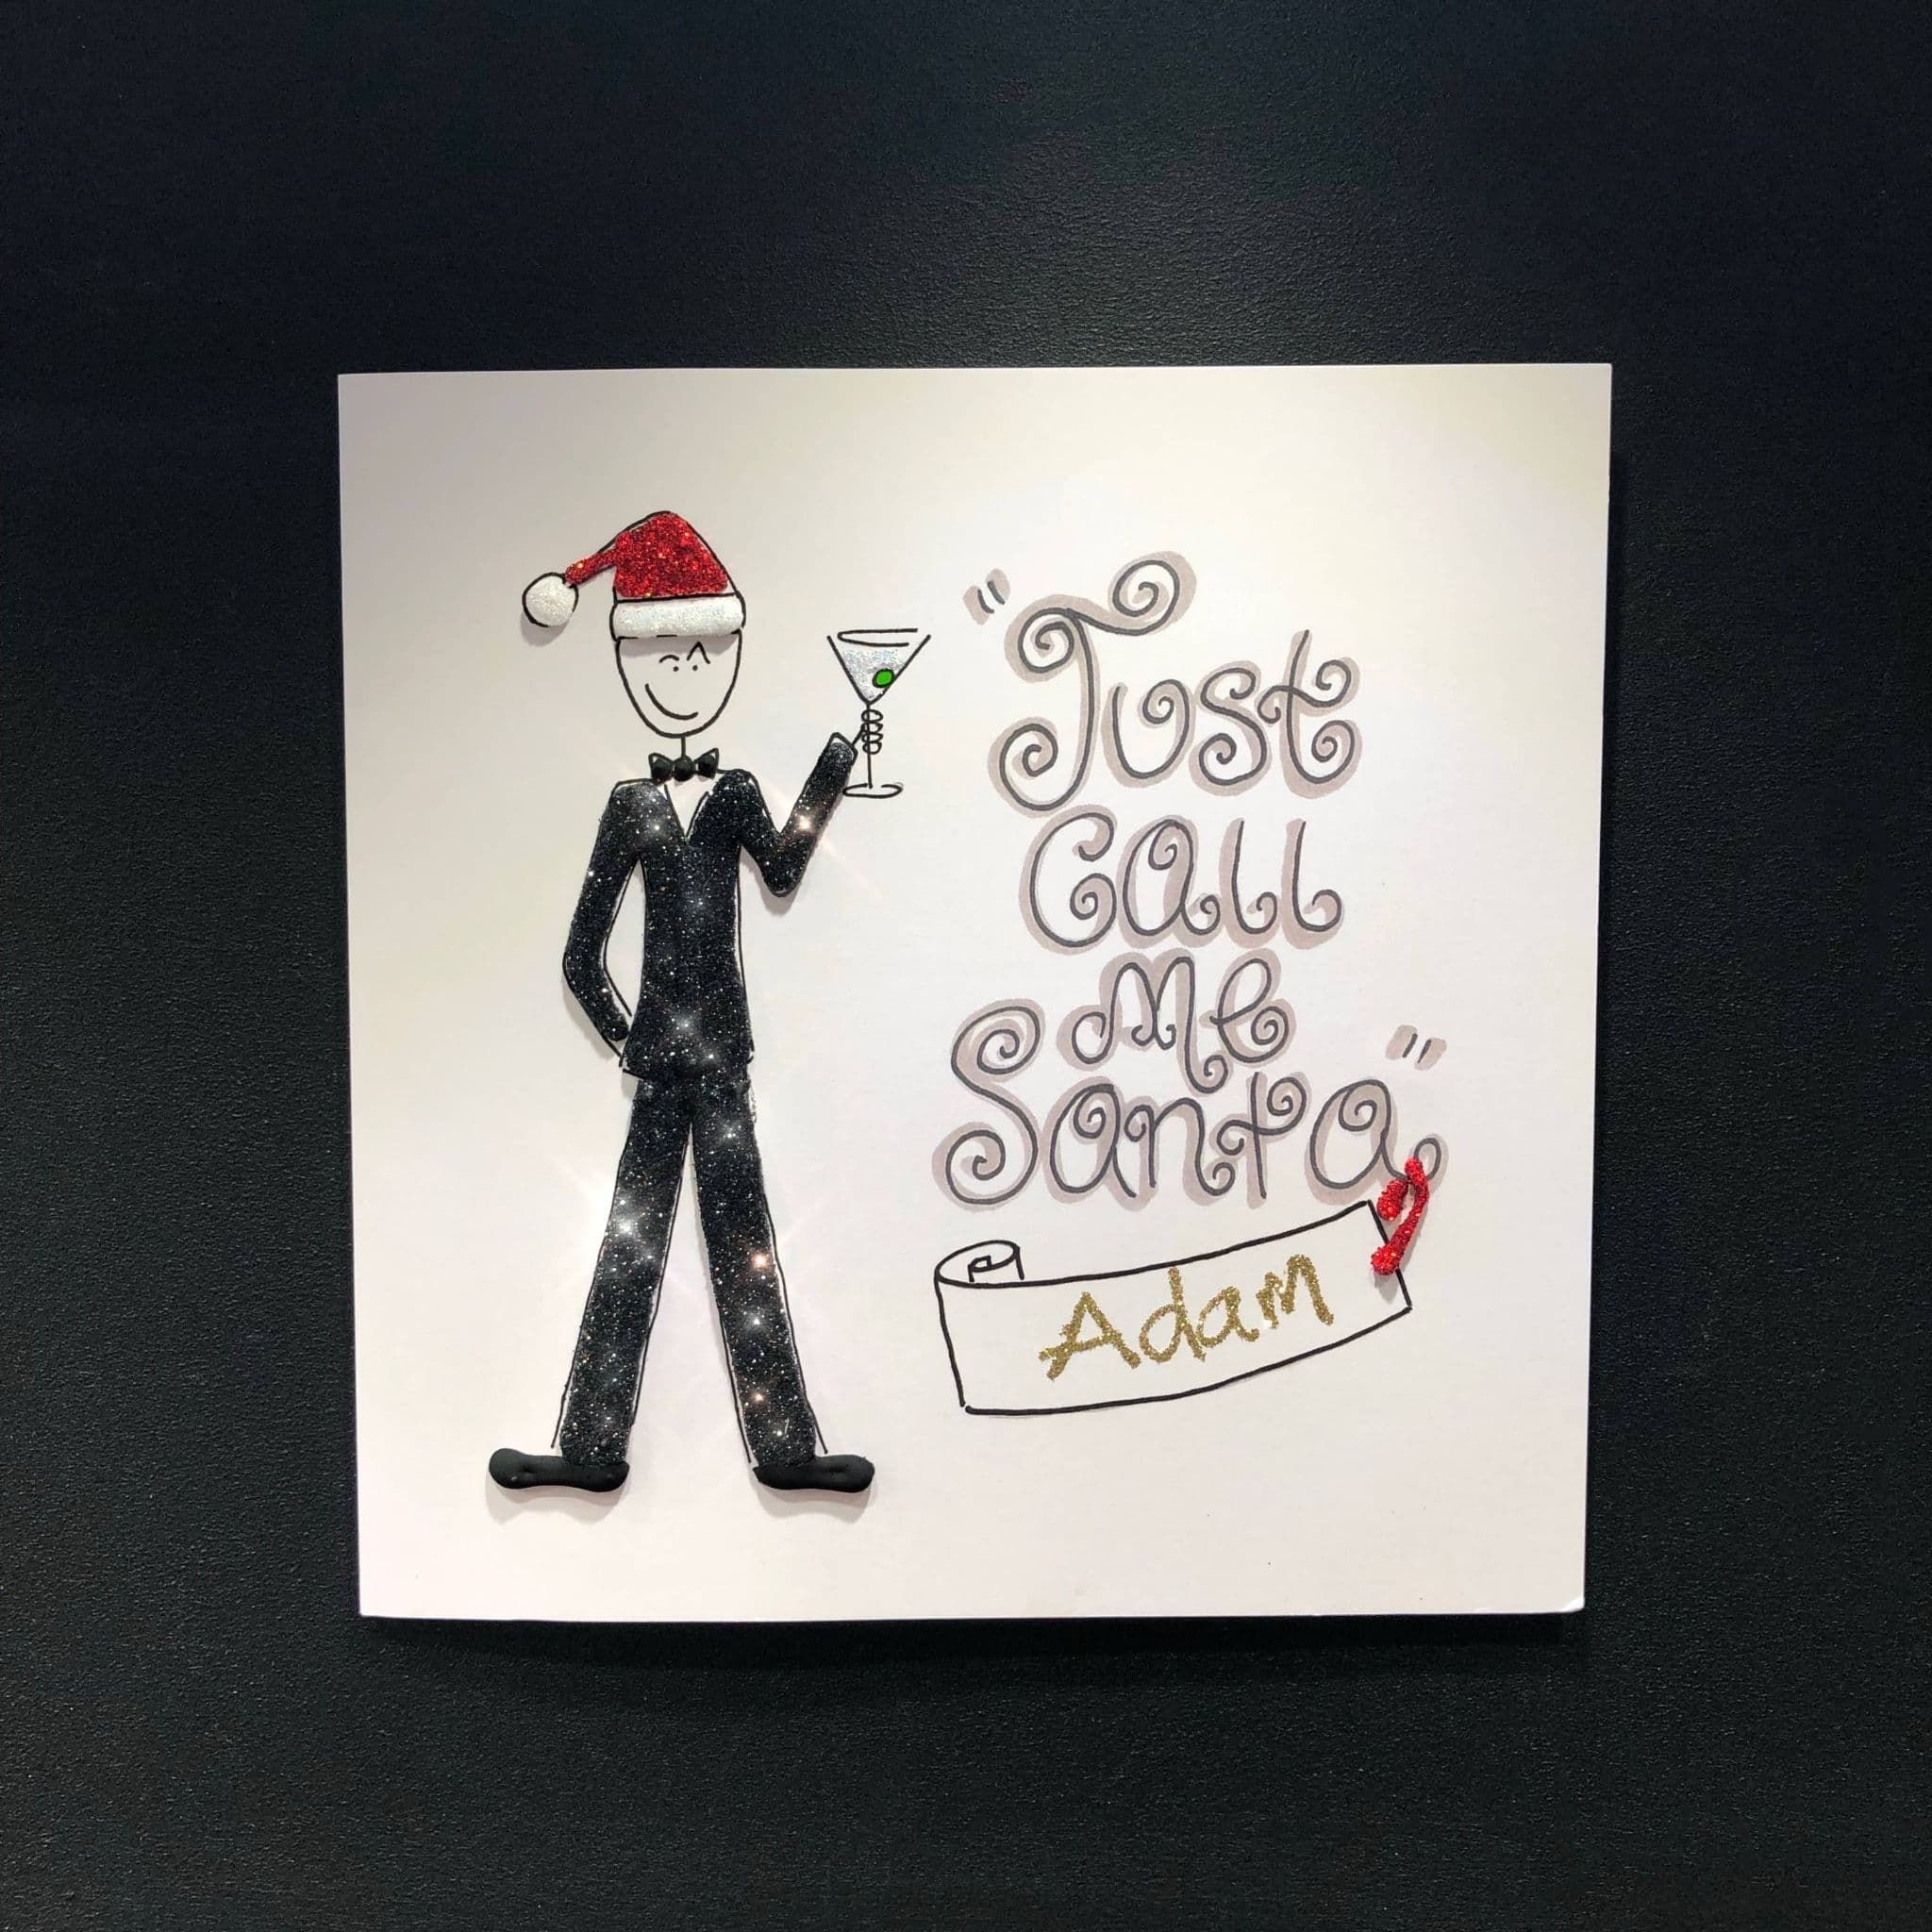 "Just
Call
me
Santa"
Adam